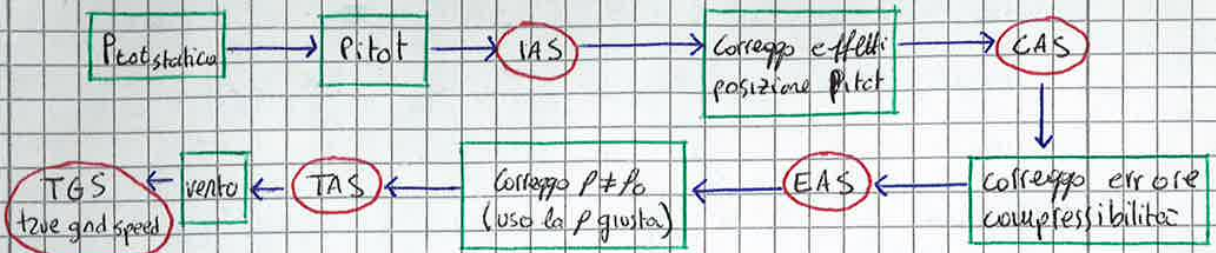 Ptot, statica
Pitot
IAS
Correggo effetti
posizione Pitot
CAS
correggo errore
compressibilità
EAS
Correggo ρ ≠ ρ0
(uso la ρ giusta)
TAS
vento
TGS
true gnd speed